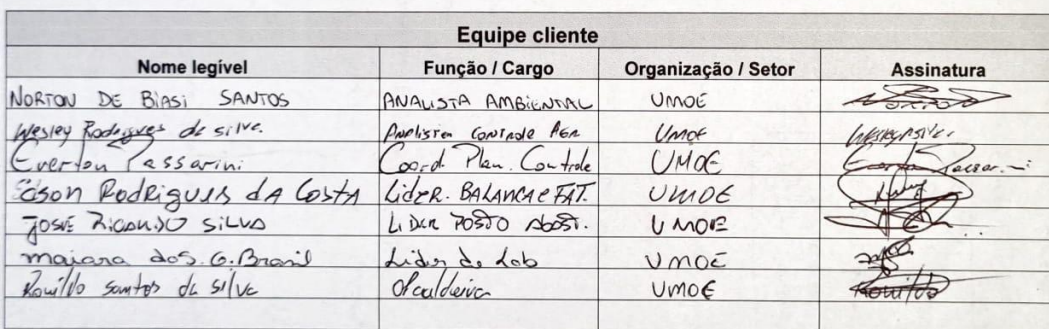 Equipe cliente
Nome legível Função / Cargo Organização / Setor Assinatura
NORTON DE BIASI SANTOS ANALISTA AMBIENTAL UMOE NORTON
Wesley Rodrigues da silva. Analista CONTROLE AGR UMOE
Everton Passarini Coord. Plan. Controle UMOE Everton Passarini
Edson RodRigues dA CostA LideR. BALANCA e FAT. UMOE
JOSÉ RICARDO SILVA LIDER POSTO Abast. UMOE
maiara dos. G. Brasil Lider de Lab UMOE
Ronildo Santos da silva UMOE Ronildo